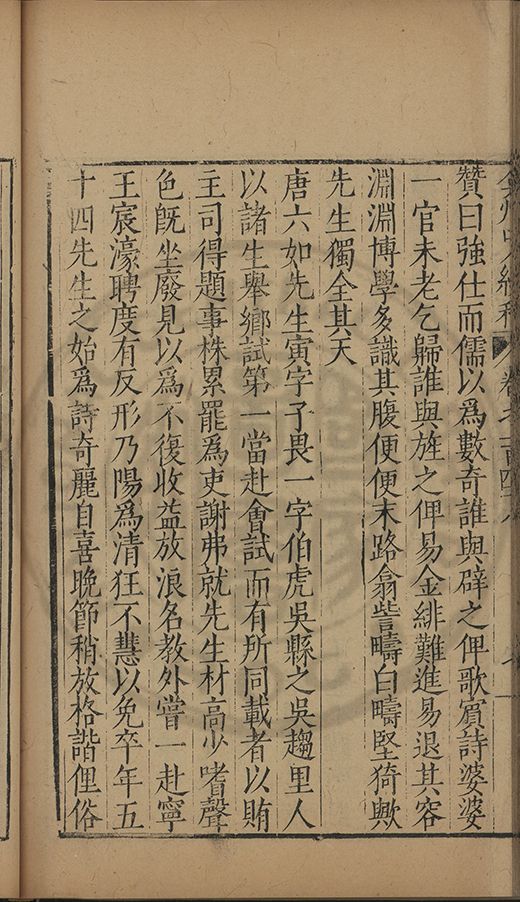 贊曰強仕而儒以為數奇誰與辟之俾歌賓詩婆婆
一官未老乞歸誰與旌之俾易金緋難進易退其容
淵淵博學多識其腹便便末路翕訾疇白疇堅猗歟
先生獨全其天
唐六如先生寅字子畏一字伯虎吳縣之吳趨里人
以諸生舉鄉試第一當赴會試而有所同載者以賄
主司得題事株累罷為吏謝弗就先生材高少嗜聲
色旣坐廢見以為不復收益放浪名教外嘗一赴寧
王宸濠聘度有反形乃陽為清狂不慧以免卒年五
十四先生之始為詩奇麗自喜晚節稍放格諧俚俗